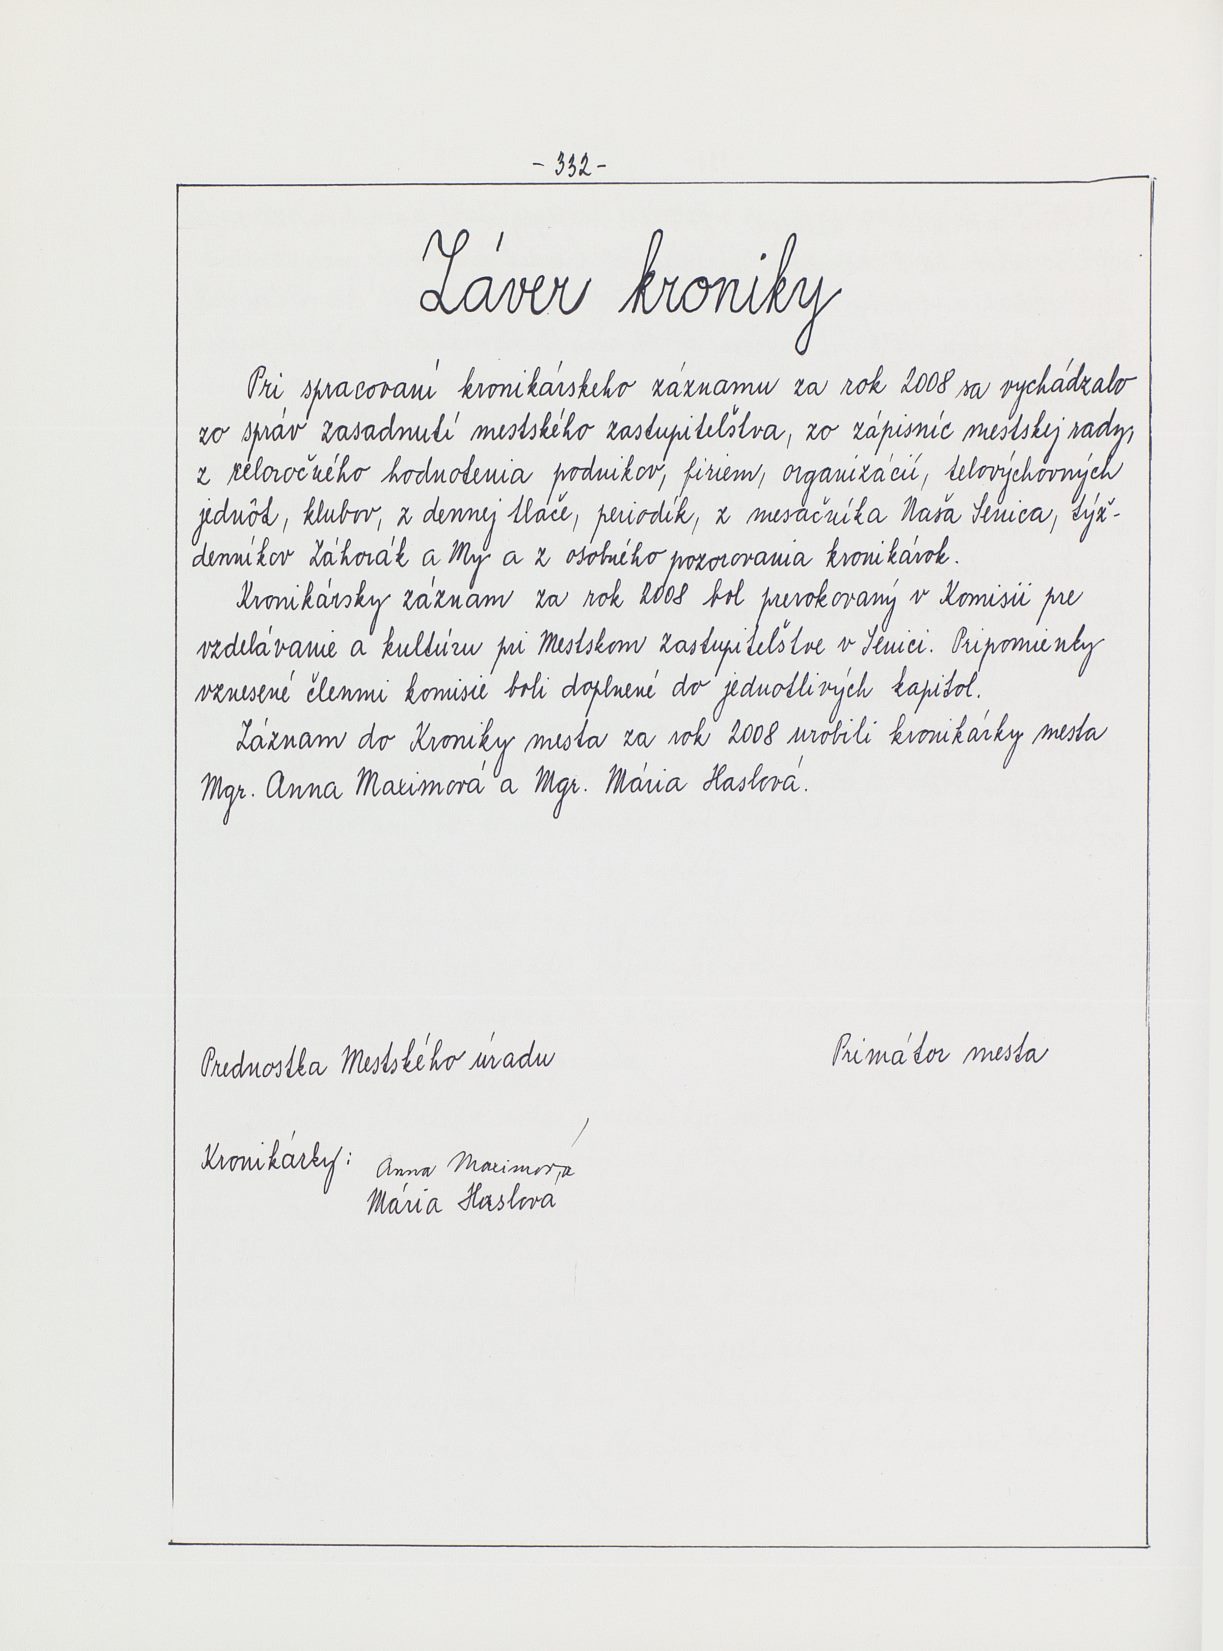 - 332 -
Záver kroniky
Pri spracovaní kronikárskeho záznamu za rok 2008 sa vychádzalo
zo správ zasadnutí mestského zastupiteľstva, zo zápisníc mestskej rady,
z celoročného hodnotenia podnikov, firiem, organizácií, telovýchovných
jednôt, klubov, z dennej tlače, periodík, z mesačníka Naša Senica, týž-
denníkov Záhorák a My a z osobného pozorovania kronikárok.
Kronikársky záznam za rok 2008 bol prerokovaný v Komisii pre
vzdelávanie a kultúru pri Mestskom zastupiteľstve v Senici. Pripomienky
vznesené členmi komisie boli doplnené do jednotlivých kapitol.
Záznam do Kroniky mesta za rok 2008 urobili kronikárky mesta
Mgr. Anna Maximová a Mgr. Mária Haslová.
Prednostka Mestského úradu
Primátor mesta
Kronikárky: Anna Maximová
Mária Haslová